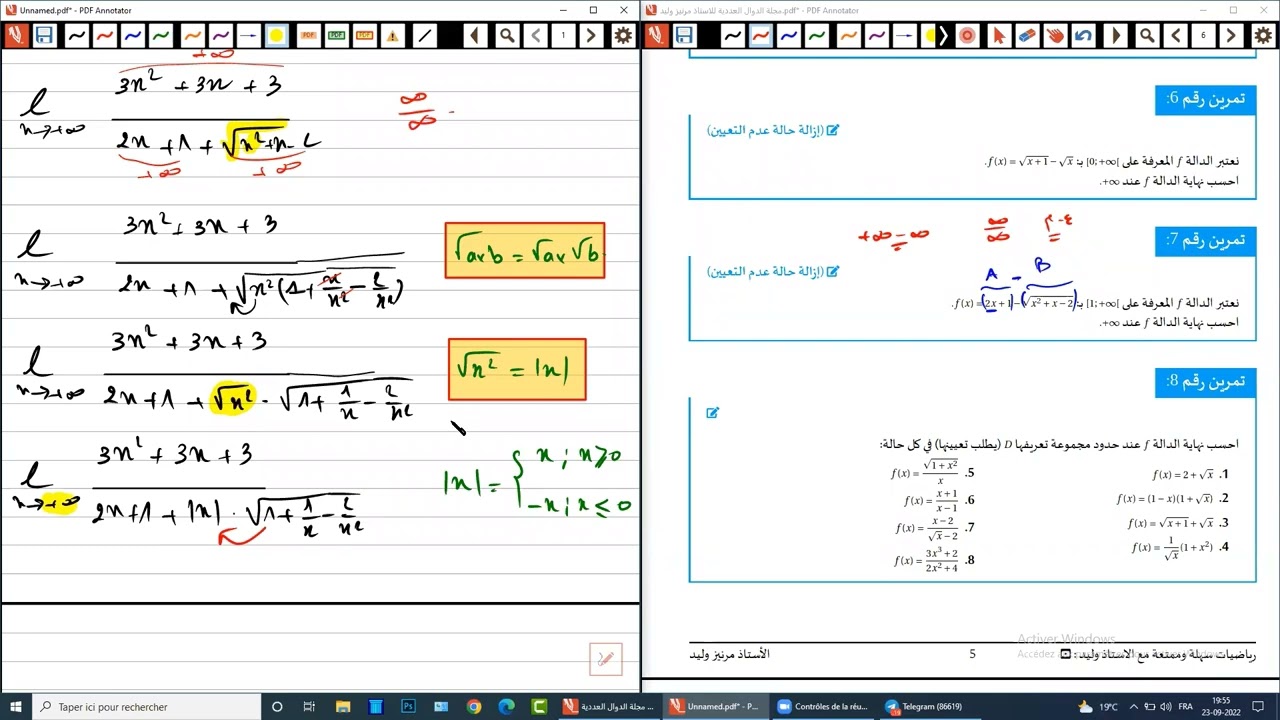 Unnamed.pdf* - PDF Annotator
1
+∞
3x² + 3x + 3
l
x→+∞
2x + 1 + √x²+x-2
+∞ +∞
∞/∞
3x² + 3x + 3
l
x→+∞
2x + 1 + √x²(1 + x/x² - 2/x²)
√a×b = √a×√b
3x² + 3x + 3
l
x→+∞
2x + 1 + √x² · √1 + 1/x - 2/x²
√x² = |x|
3x² + 3x + 3
l
x→+∞
2x + 1 + |x| · √1 + 1/x - 2/x²
|x| = { x ; x ≥ 0
-x ; x ≤ 0
مجلة الدوال العددية للاستاذ مرنيز وليد.pdf* - PDF Annotator
6
تمرين رقم 6:
(إزالة حالة عدم التعيين)
نعتبر الدالة f المعرفة على [0;+∞[ بـ: f(x) = √x+1 − √x.
احسب نهاية الدالة f عند +∞.
+∞ -∞ ∞/∞ ح-ع-ت
تمرين رقم 7:
A - B
(إزالة حالة عدم التعيين)
نعتبر الدالة f المعرفة على [1;+∞[ بـ: f(x) = (2x+1) − (√x²+x−2).
احسب نهاية الدالة f عند +∞.
تمرين رقم 8:
احسب نهاية الدالة f عند حدود مجموعة تعريفها D (يطلب تعيينها) في كل حالة:
1. f(x) = 2 + √x
2. f(x) = (1−x)(1+√x)
3. f(x) = √x+1 + √x
4. f(x) = 1/√x (1+x²)
5. f(x) = √1+x² / x
6. f(x) = x+1 / x−1
7. f(x) = x−2 / √x−2
8. f(x) = 3x³+2 / 2x²+4
Activer Windows
رياضيات سهلة وممتعة مع الاستاذ وليد:
5
الأستاذ مرنيز وليد
Taper ici pour rechercher
مجلة الدوال العددية ...
Unnamed.pdf* - P...
Contrôles de la réu...
Telegram (86619)
19°C
FRA
19:55
23-09-2022